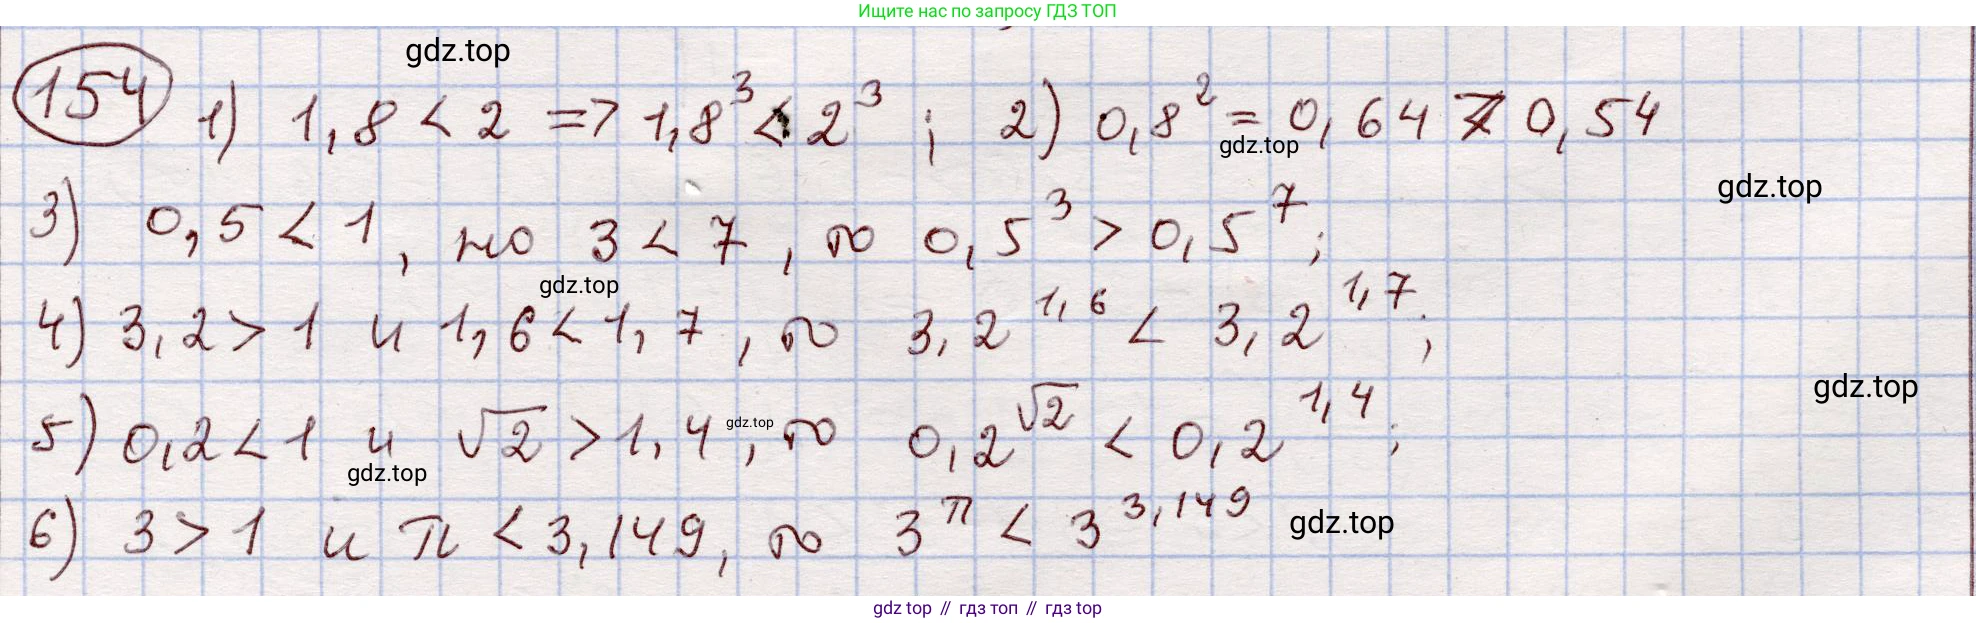 Ищите нас по запросу ГДЗ ТОП
gdz.top
154 1) 1,8 < 2 => 1,8³ < 2³ ; 2) 0,8² = 0,64 > 0,54
gdz.top
gdz.top
3) 0,5 < 1, но 3 < 7, то 0,5³ > 0,5⁷;
gdz.top
4) 3,2 > 1 и 1,6 < 1,7, то 3,2^1,6 < 3,2^1,7;
gdz.top
5) 0,2 < 1 и √2 > 1,4, то 0,2^√2 < 0,2^1,4;
gdz.top
gdz.top
6) 3 > 1 и π < 3,149, то 3^π < 3^3,149
gdz.top
gdz top // гдз топ // гдз top